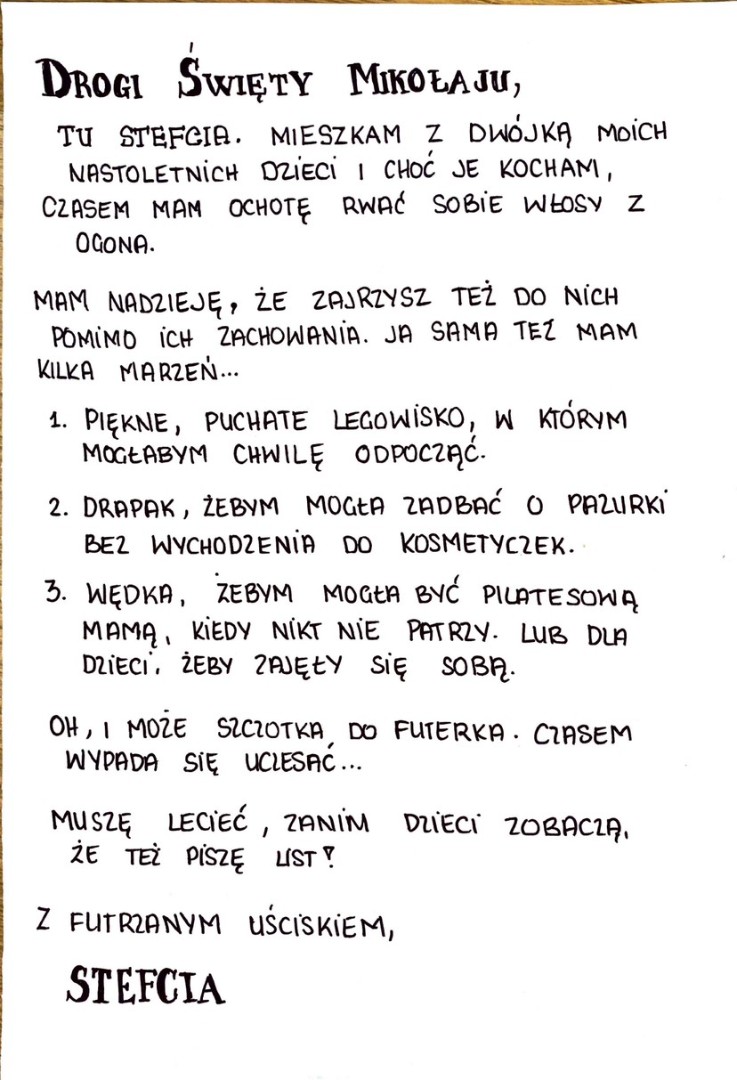 DROGI ŚWIĘTY MIKOŁAJU,
TU STEFCIA. MIESZKAM Z DWÓJKĄ MOICH
NASTOLETNICH DZIECI I CHOĆ JE KOCHAM,
CZASEM MAM OCHOTĘ RWAĆ SOBIE WŁOSY Z
OGONA.
MAM NADZIEJĘ, ŻE ZAJRZYSZ TEŻ DO NICH
POMIMO ICH ZACHOWANIA. JA SAMA TEŻ MAM
KILKA MARZEŃ...
1. PIĘKNE, PUCHATE LEGOWISKO, W KTÓRYM
MOGŁABYM CHWILĘ ODPOCZĄĆ.
2. DRAPAK, ŻEBYM MOGŁA ZADBAĆ O PAZURKI
BEZ WYCHODZENIA DO KOSMETYCZEK.
3. WĘDKA, ŻEBYM MOGŁA BYĆ PILATESOWĄ
MAMĄ, KIEDY NIKT NIE PATRZY. LUB DLA
DZIECI, ŻEBY ZAJĘŁY SIĘ SOBĄ.
OH, I MOŻE SZCZOTKA DO FUTERKA. CZASEM
WYPADA SIĘ UCZESAĆ...
MUSZĘ LECIEĆ, ZANIM DZIECI ZOBACZĄ,
ŻE TEŻ PISZĘ LIST!
Z FUTRZANYM UŚCISKIEM,
STEFCIA